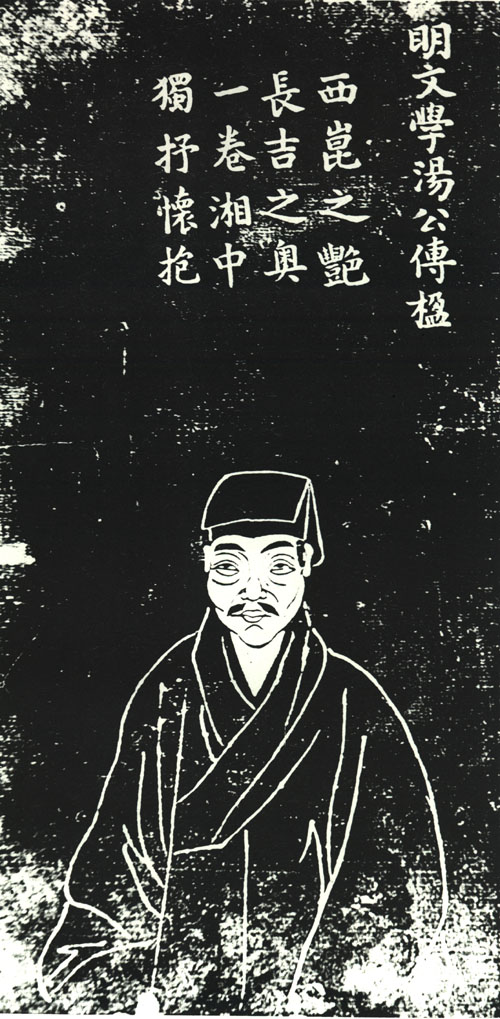 明文學湯公傳楹
西崑之艷
長吉之奧
一卷湘中
獨抒懷抱